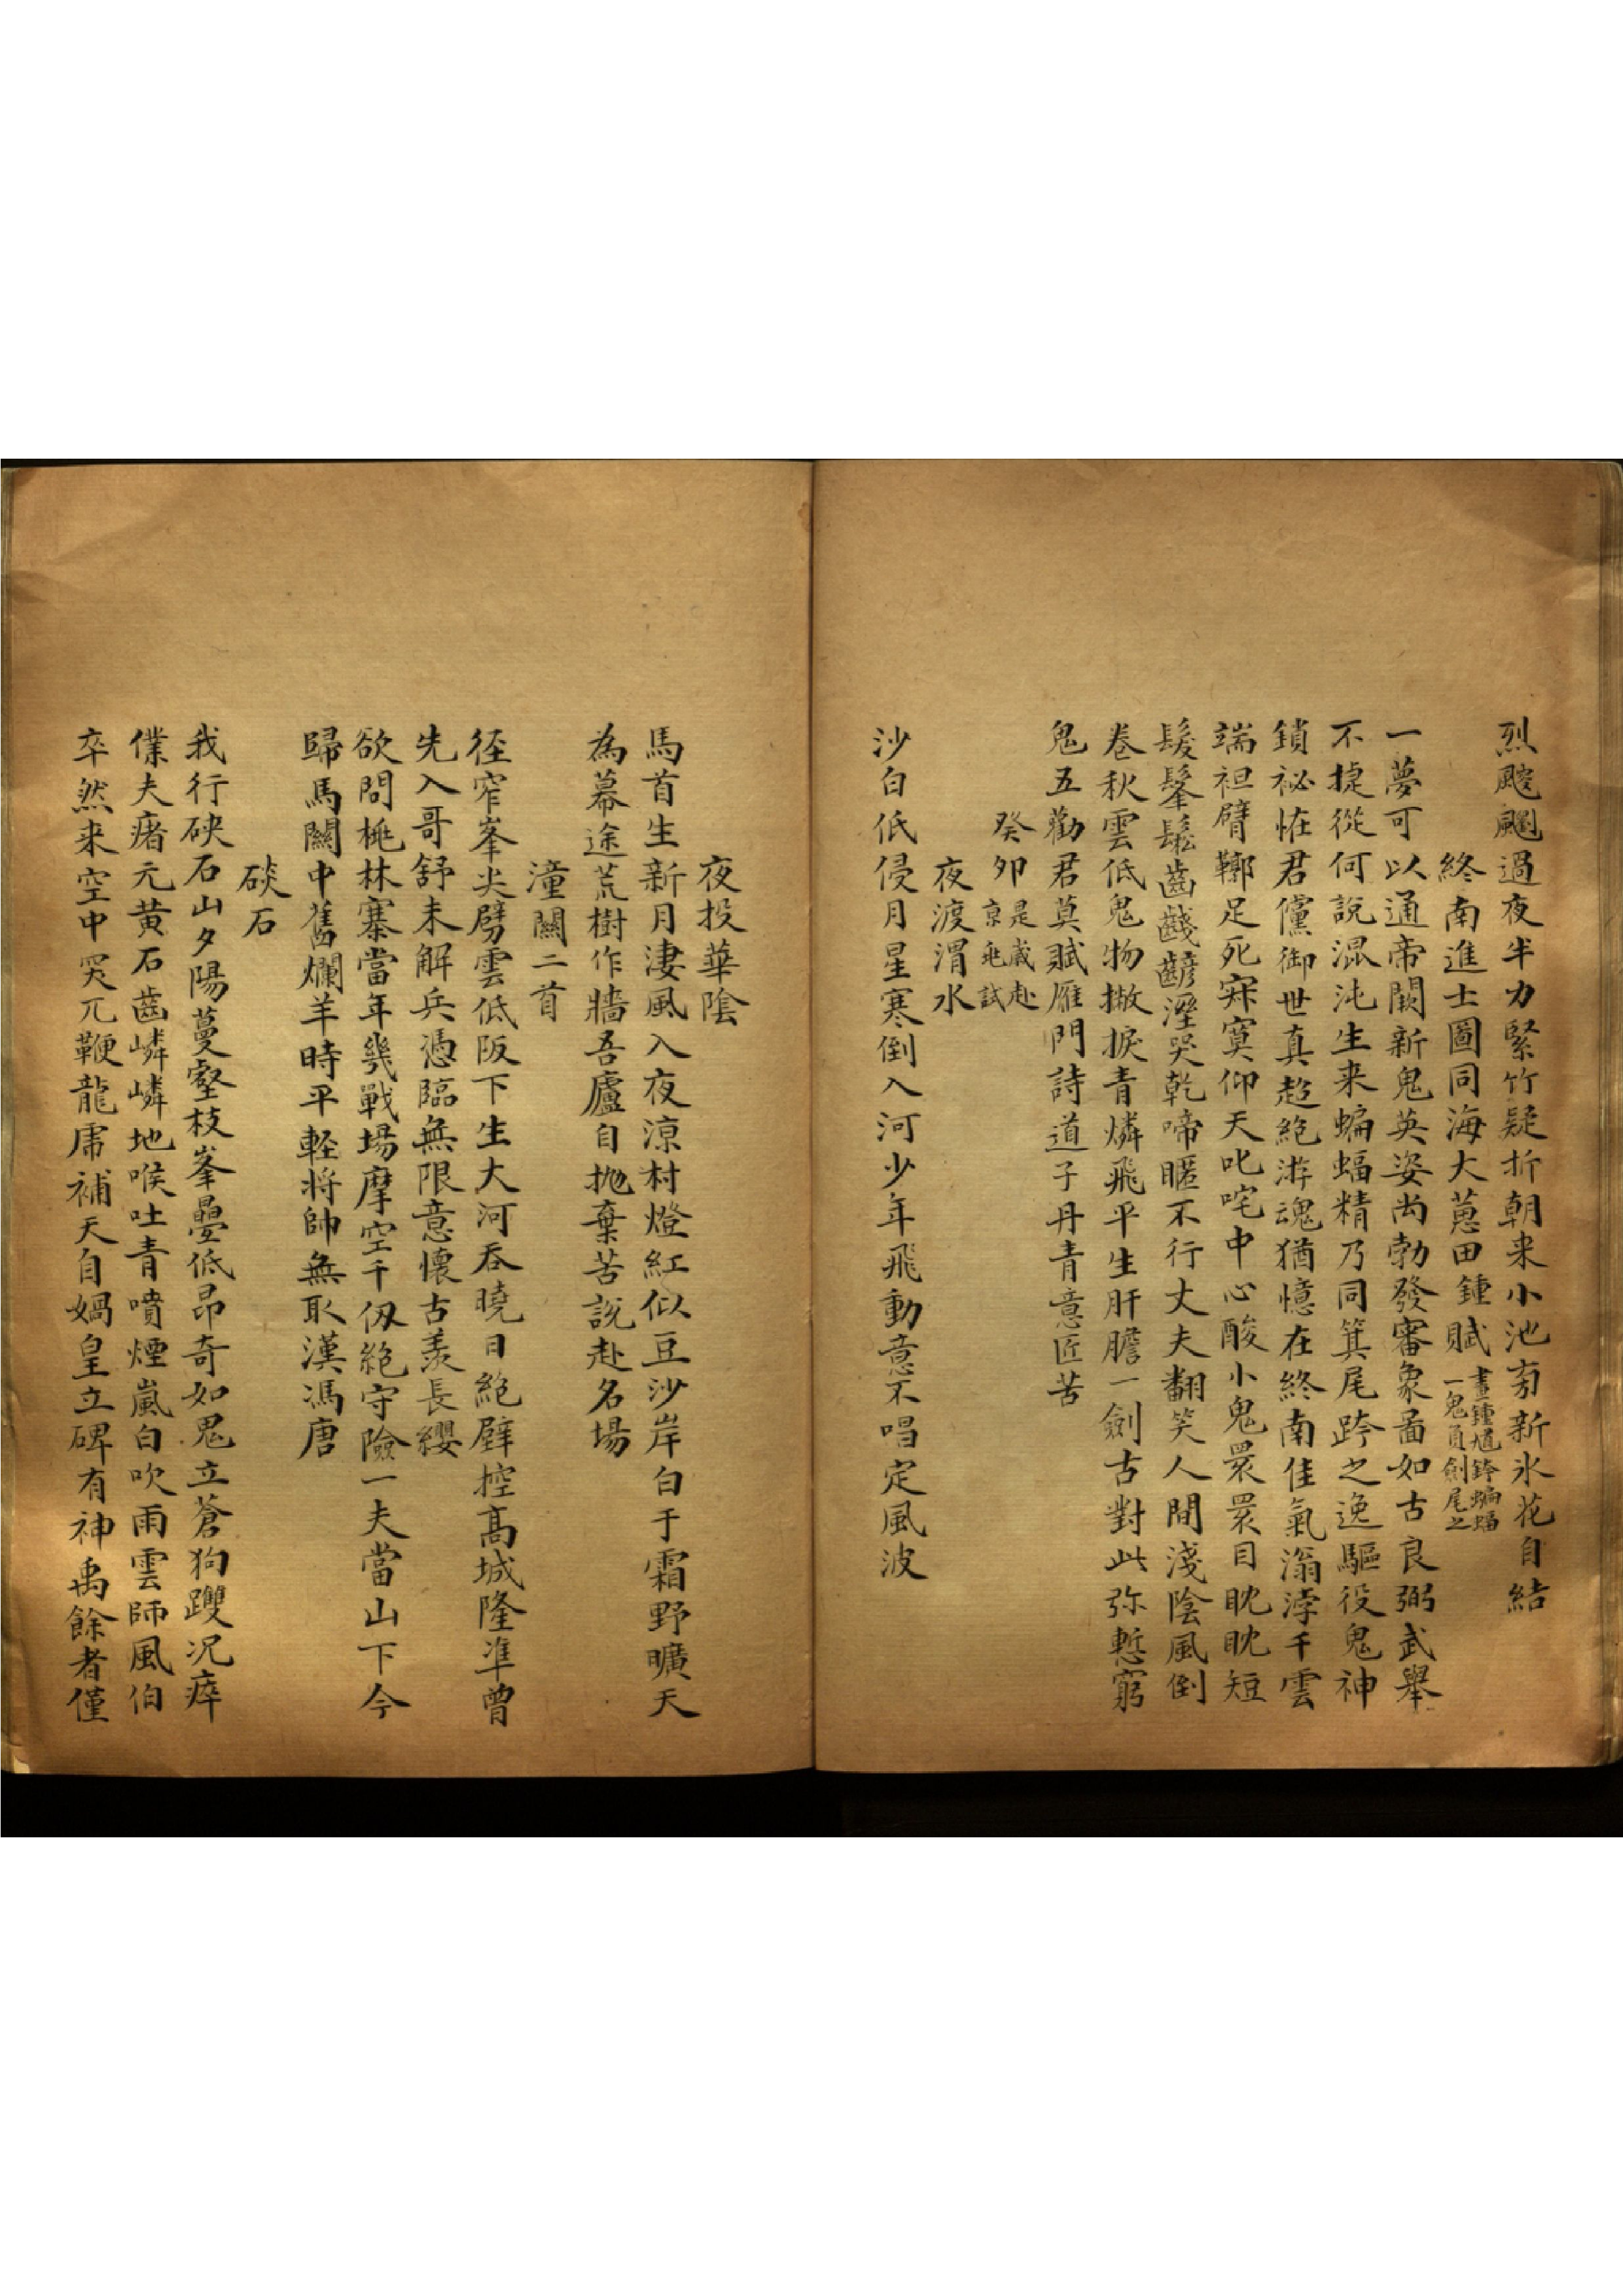 烈颼颼過夜半力緊竹疑折朝来小池有新氷花自結
終南進士圖同海大蔥田鍾賦
畫鍾馗跨蝙蝠
一鬼負劍尾之
一夢可以通帝闕新鬼英姿尚勃發審象啚如古良弼武舉
不㨗從何說混沌生来蝙蝠精乃同箕尾跨之逸驅役鬼神
鎖祕恠君儻御世真超絶游魂猶憶在終南佳氣滃浡千雲
端袒臂鞹足死寂寞仰天叱咤中心酸小鬼睘睘目眈眈短
髮髼鬆齒齾溼哭乾啼暱不行丈夫翻笑人間淺陰風倒
卷秋雲低鬼物撇捩青燐飛平生肝膽一劍古對此弥慙窮
鬼五勸君莫賦雁門詩道子丹青意匠苦
癸卯
是歲赴
京兆試
夜渡渭水
沙白低侵月星寒倒入河少年飛動意不唱定風波
夜投華隂
馬首生新月淒風入夜涼村燈紅似豆沙岸白于霜野曠天
為幕途荒樹作牆吾廬自抛棄苦說赴名場
潼關二首
径窄峯尖劈雲低阪下生大河吞曉日絶壁控髙城隆凖曾
先入哥舒未解兵憑臨無限意懷古羨長纓
欲問桃林寨當年幾戰場摩空千仭絶守險一夫當山下今
歸馬關中舊爛羊時平軽将帥無取漢馮唐
硤石
我行硤石山夕陽蔓壑枝峯疊低昂奇如鬼立蒼狗躩况瘁
僕夫瘏元黄石齒嶙嶙地喉吐青噴煙嵐白吹雨雲師風伯
卒然来空中突兀鞭龍虎補天自媧皇立碑有神禹餘者僅